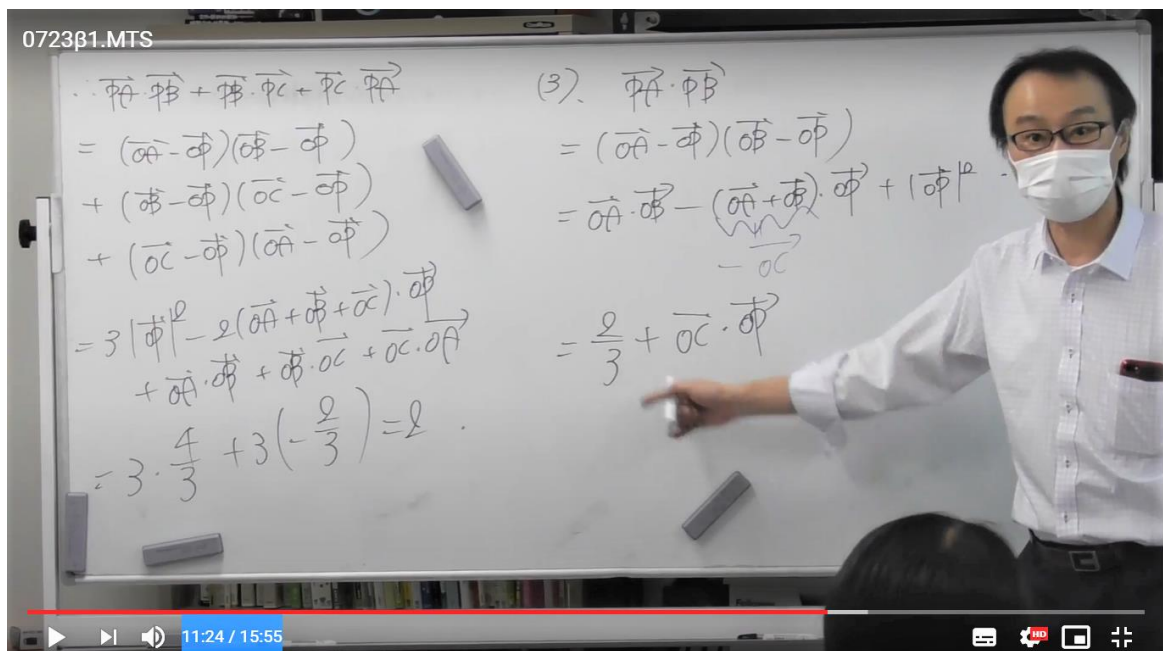 0723β1.MTS
∴ \overrightarrow{PA}·\overrightarrow{PB} + \overrightarrow{PB}·\overrightarrow{PC} + \overrightarrow{PC}·\overrightarrow{PA}
= (\overrightarrow{OA} - \overrightarrow{OP})(\overrightarrow{OB} - \overrightarrow{OP})
+ (\overrightarrow{OB} - \overrightarrow{OP})(\overrightarrow{OC} - \overrightarrow{OP})
+ (\overrightarrow{OC} - \overrightarrow{OP})(\overrightarrow{OA} - \overrightarrow{OP})
= 3|\overrightarrow{OP}|^2 - 2(\overrightarrow{OA} + \overrightarrow{OB} + \overrightarrow{OC})·\overrightarrow{OP}
+ \overrightarrow{OA}·\overrightarrow{OB} + \overrightarrow{OB}·\overrightarrow{OC} + \overrightarrow{OC}·\overrightarrow{OA}
= 3·\frac{4}{3} + 3(-\frac{2}{3}) = 2.
(3). \overrightarrow{PA}·\overrightarrow{PB}
= (\overrightarrow{OA} - \overrightarrow{OP})(\overrightarrow{OB} - \overrightarrow{OP})
= \overrightarrow{OA}·\overrightarrow{OB} - (\overrightarrow{OA} + \overrightarrow{OB})·\overrightarrow{OP} + |\overrightarrow{OP}|^2
- \overrightarrow{OC}
= \frac{2}{3} + \overrightarrow{OC}·\overrightarrow{OP}
11:24 / 15:55
HD